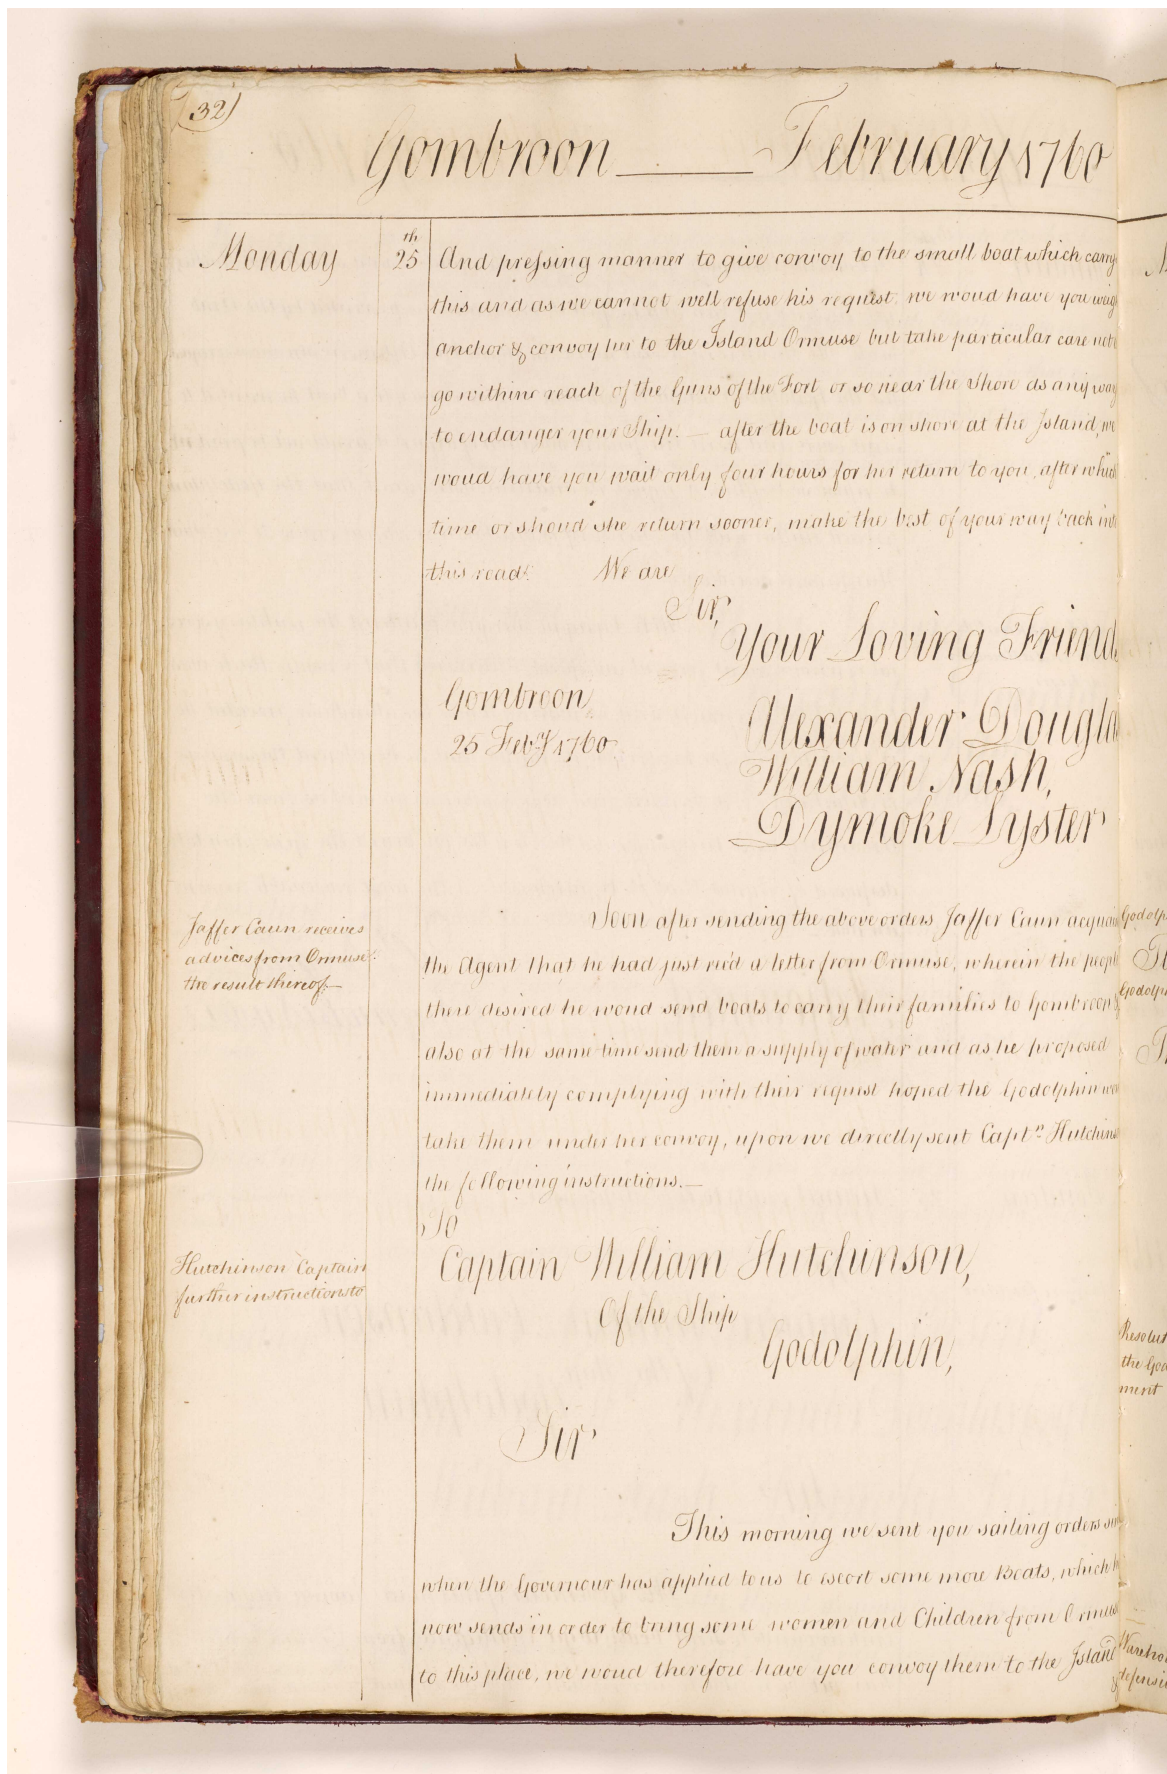 (32)
Gombroon February 1760
Monday 25th And pressing manner to give convoy to the small boat which carry
this and as we cannot well refuse his request, we woud have you weig
anchor & convoy her to the Island Ormuse but take particular care not
go withine reach of the Guns of the Fort or so near the Shore as any way
to endanger your Ship. — after the boat is on shore at the Island, we
woud have you wait only four hours for her return to you, after which
time or shoud she return sooner, make the best of your way back into
this road. We are
Sir,
Your Loving Friend
Gombroon,
25 Feb:ry 1760
Alexander Dougla
William Nash,
Dymoke Lyster
Jaffer Caun receives
advices from Ormuse
the result thereof—
Soon after sending the above orders Jaffer Caun acquai
the Agent that he had just rec'd a letter from Ormuse, wherein the peopl
there desired he woud send boats to carry their families to Gombroon &
also at the same time send them a supply of water and as he proposed
immediately complying with their request hoped the Godolphin wou
take them under her convoy, upon we directly sent Capt:n Hutchins
the following instructions.—
Hutchinson Captain
further instructions to
To
Captain William Hutchinson,
Of the Ship
Godolphin,
Sir
This morning we sent you sailing orders sin
when the Governour has applied to us to escort some more Boats, which h
now sends in order to bring some women and Children from Ormus
to this place, we woud therefore have you convoy them to the Island
&
Godolp
Godolph
Resolut
the God
ment
Wareho
defensi